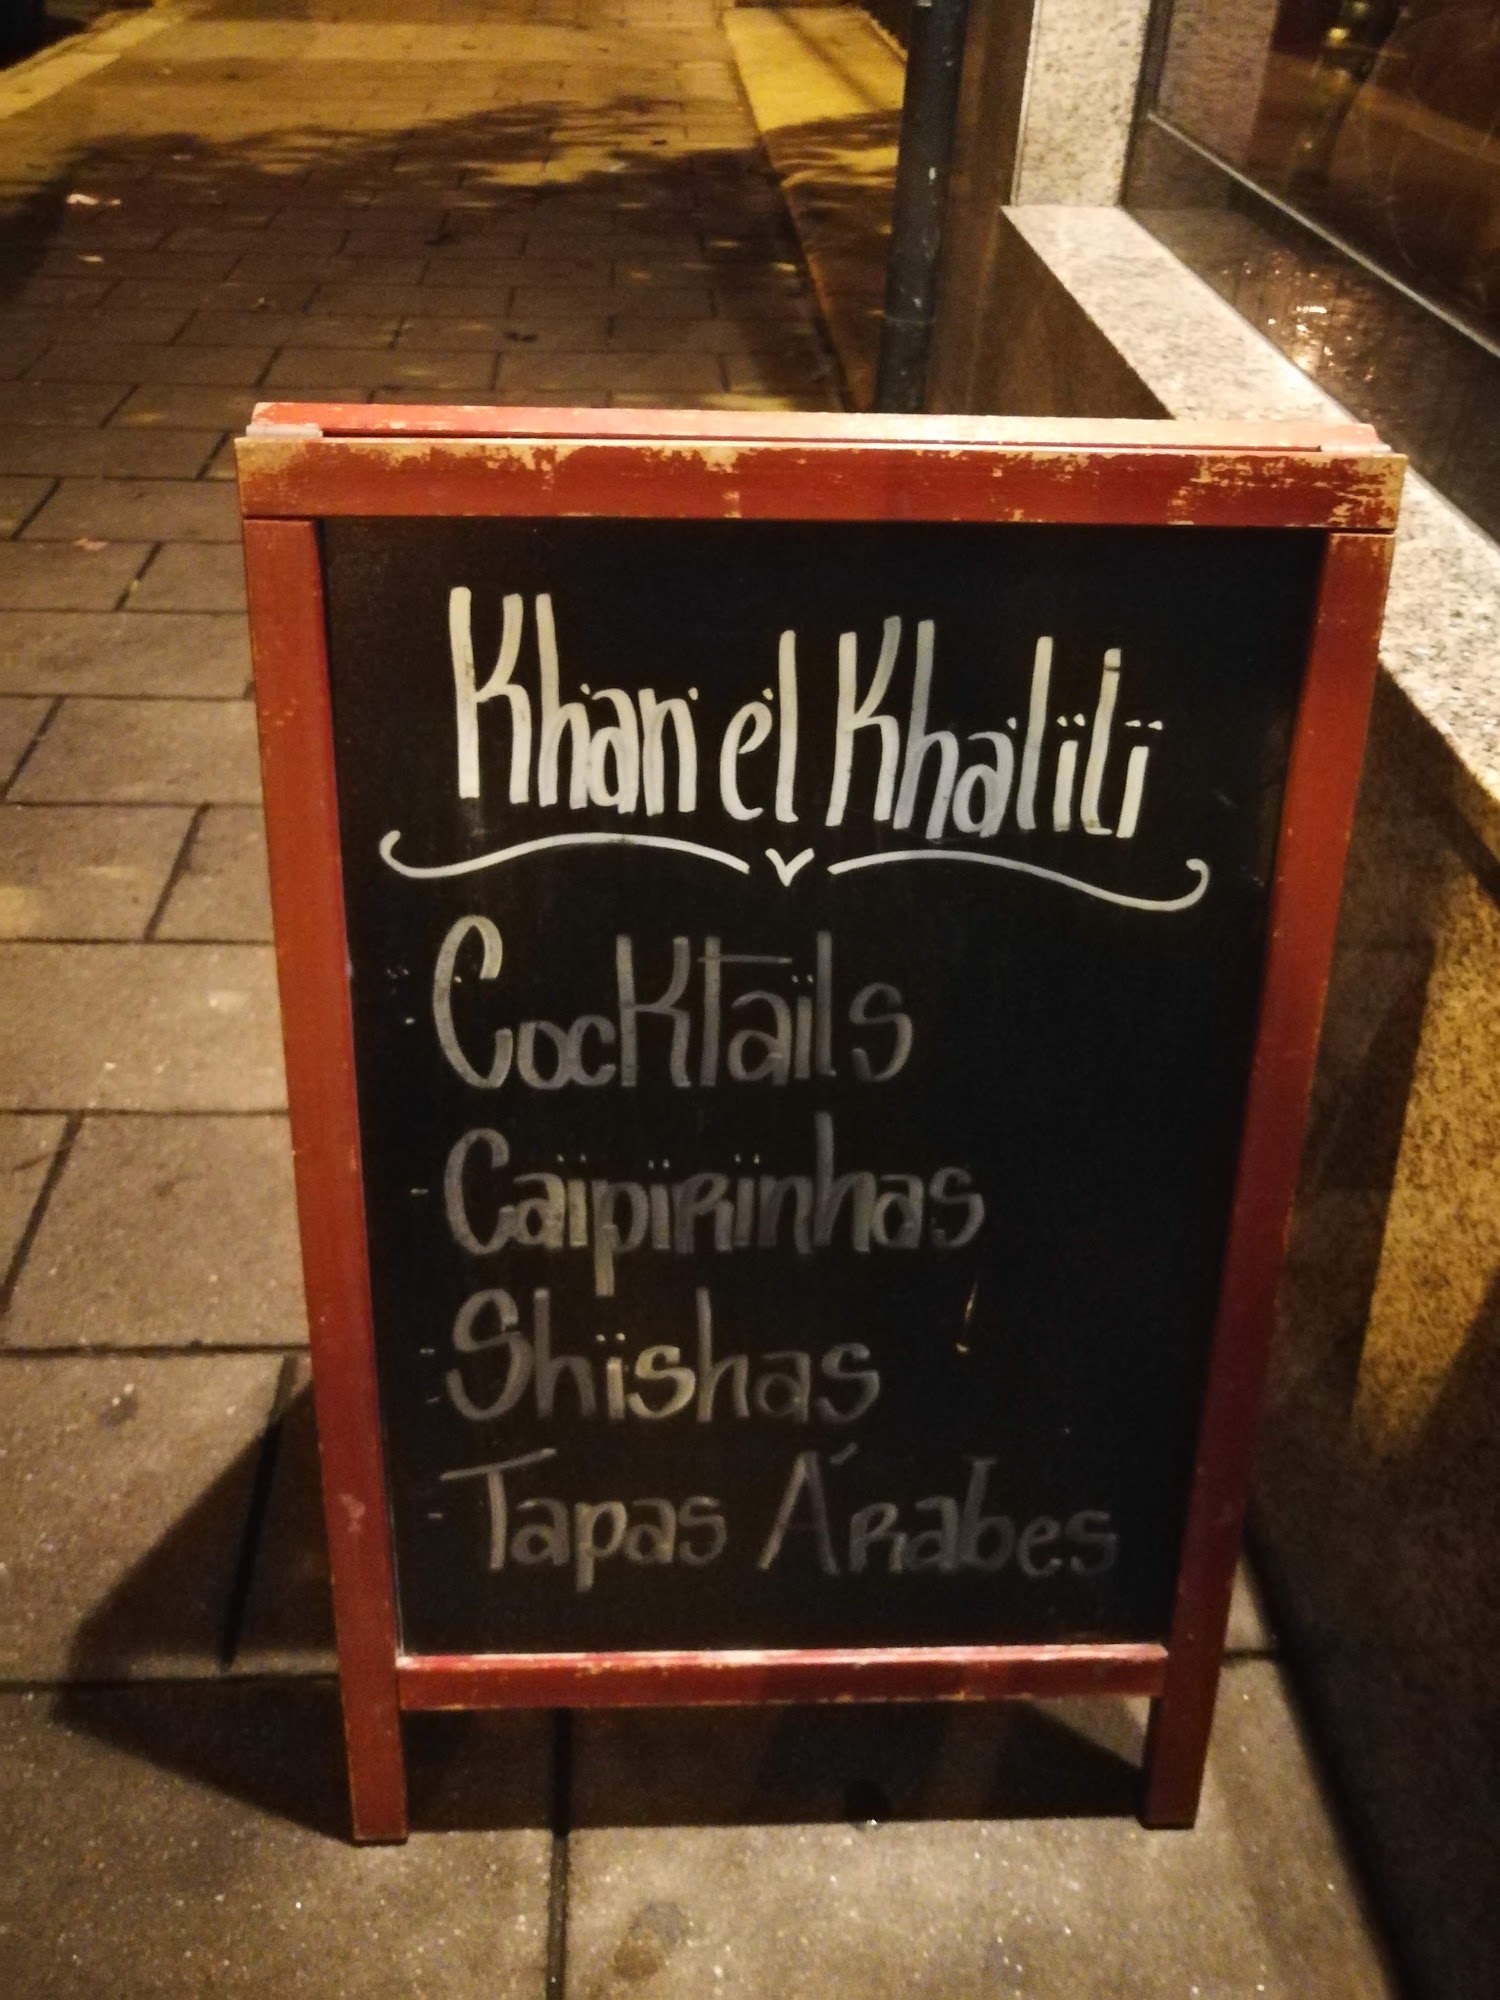 Khan el Khalili
- Cocktails
- Caipirinhas
- Shishas
- Tapas Árabes